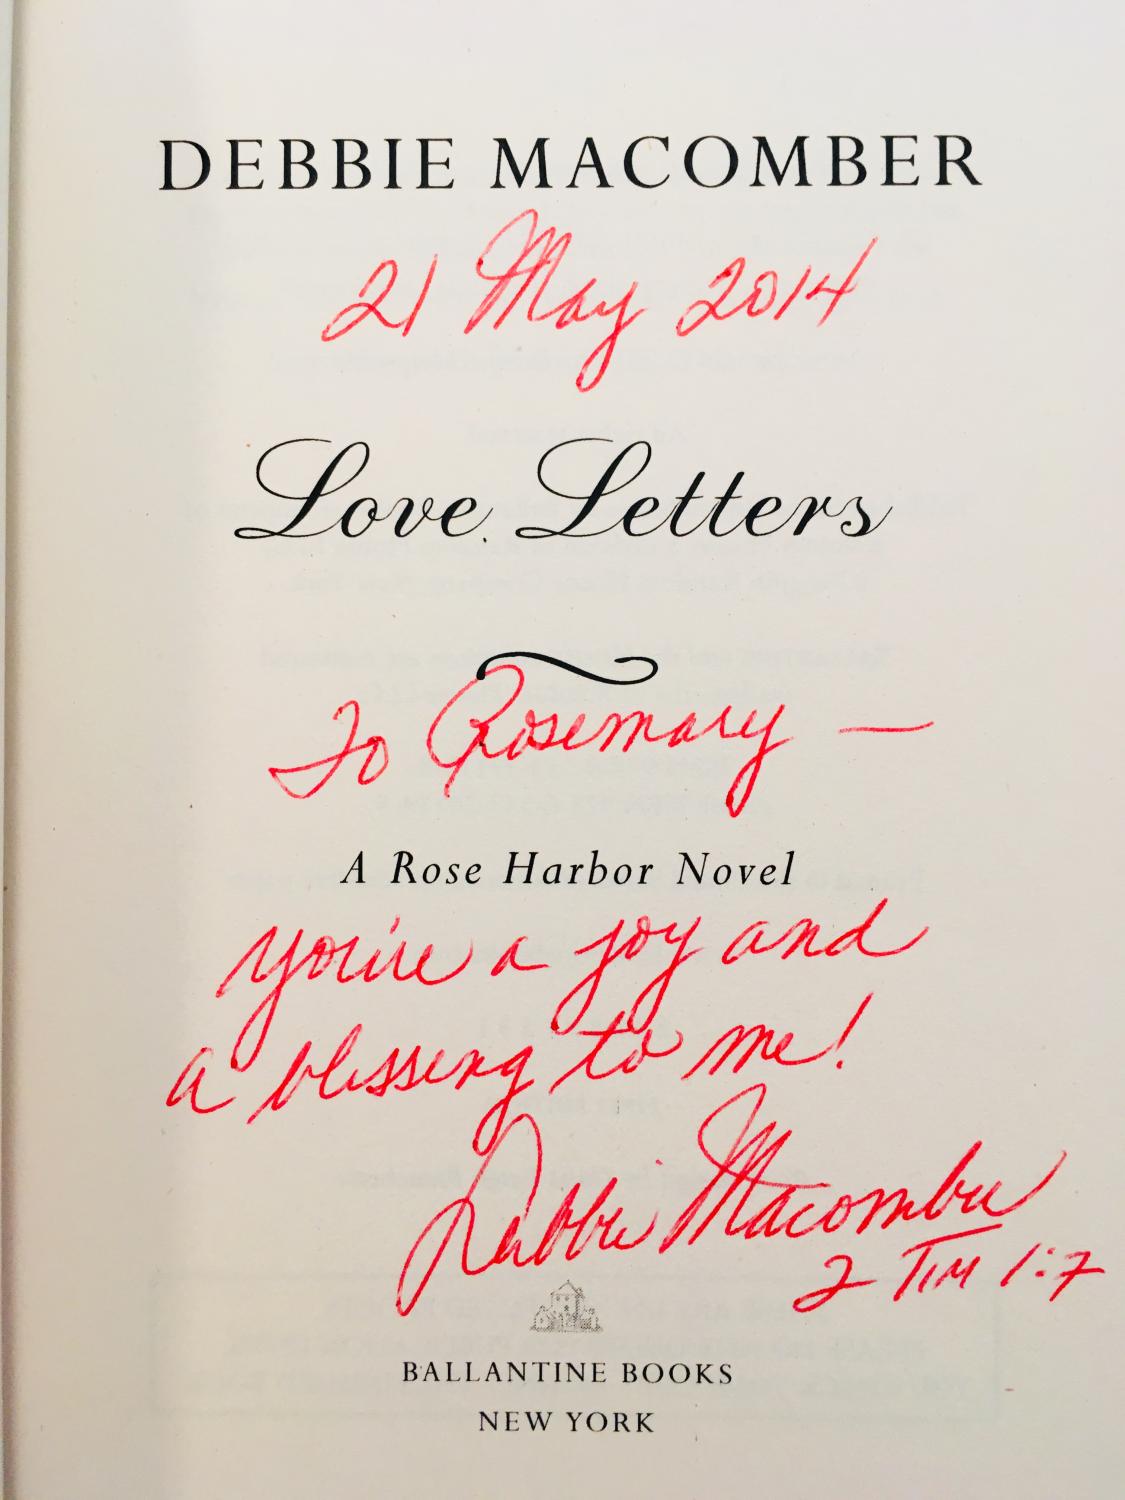 DEBBIE MACOMBER
21 May 2014
Love Letters
To Rosemary —
A Rose Harbor Novel
You're a joy and
a blessing to me!
Debbie Macomber
2 TIM 1:7
BALLANTINE BOOKS
NEW YORK